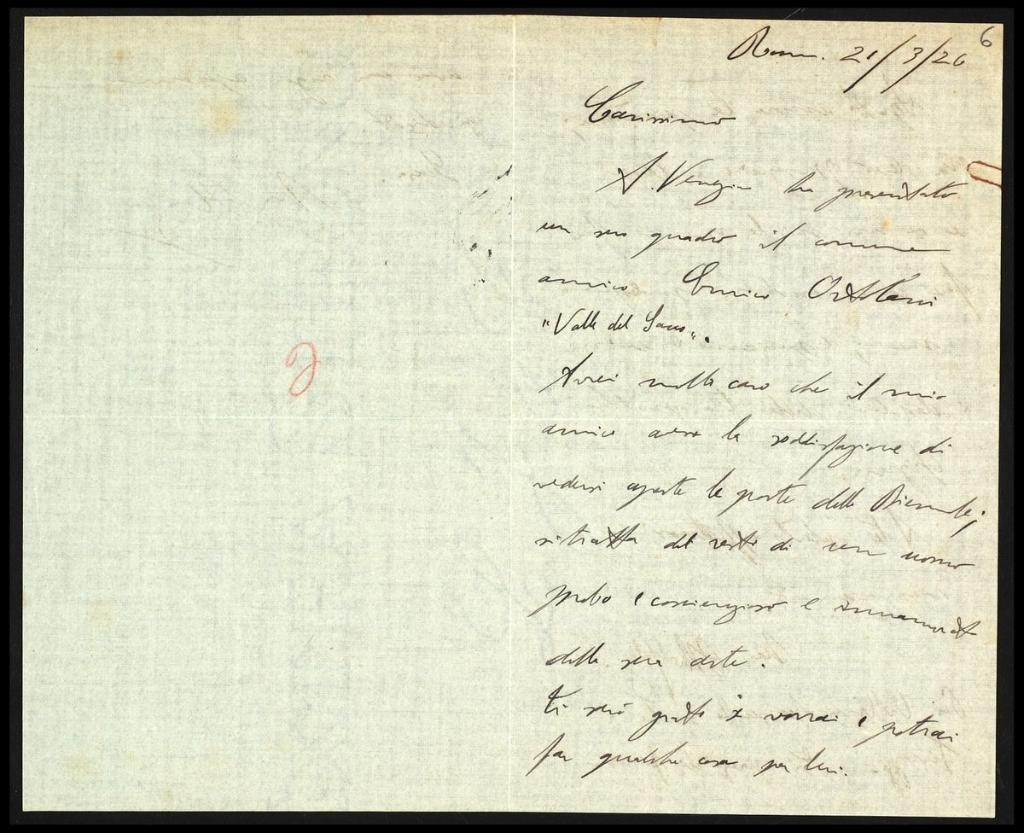 6
Roma. 21/3/26
Carissimo
A Venezia ha presentato
un suo quadro il comune
amico Enrico Ortolani
"Valle del Sacco".
Avrei molto caro che il mio
amico avesse la soddisfazione di
vedersi aperte le porte della Biennale;
si tratta del resto di un uomo
probo e coscienzioso e innamorato
della sua arte.
Ti sarò grato se vorrai e potrai
far qualche cosa per lui.
2